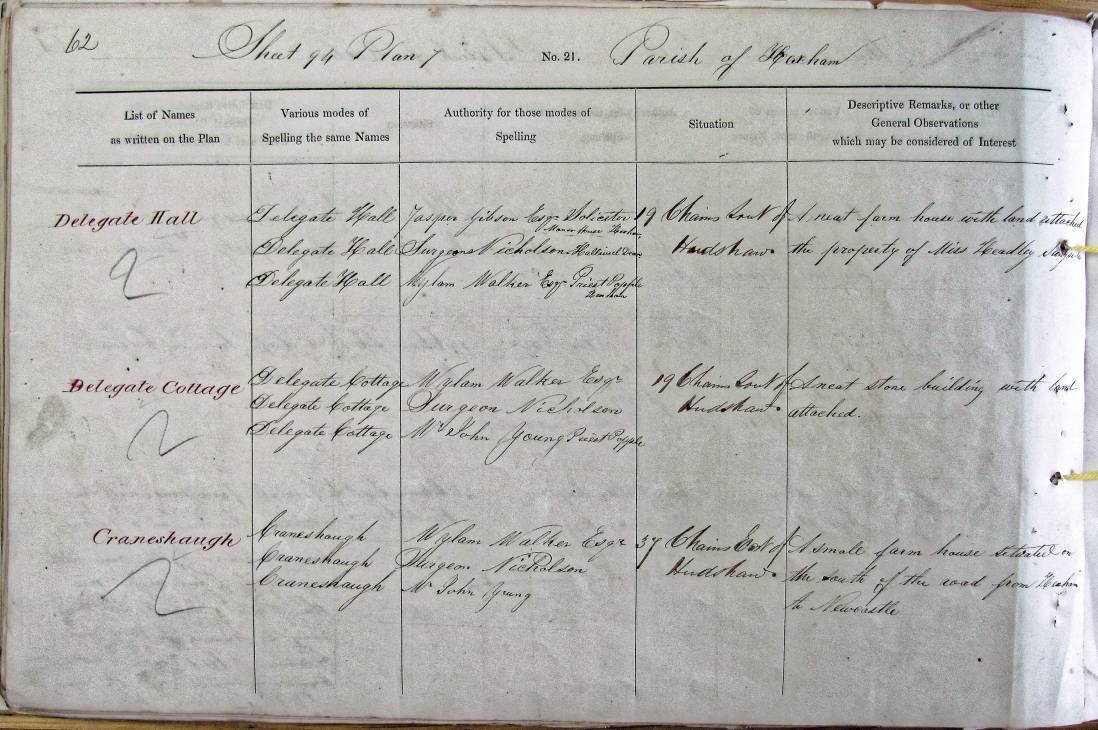 62
Sheet 94 Plan 7 No. 21. Parish of Hexham
List of Names
as written on the Plan
Various modes of
Spelling the same Names
Authority for those modes of
Spelling
Situation
Descriptive Remarks, or other
General Observations
which may be considered of Interest
Delegate Hall
Delegate Hall
Delegate Hall
Delegate Hall
Jasper Gibson Esqr Solicitor
Manor House Hexham
Surgeon Nicholson
Wylam Walker Esqr Priest Popple
Hexham
19 Chains South of
Hudshaw
A neat farm house with land attached
the property of Miss Headley
2
Delegate Cottage
Delegate Cottage
Delegate Cottage
Delegate Cottage
Wylam Walker Esqr
Surgeon Nicholson
Mr John Young Priest Popple
19 Chains South of
Hudshaw
A neat stone building with land
attached.
2
Craneshaugh
Craneshaugh
Craneshaugh
Craneshaugh
Wylam Walker Esqr
Surgeon Nicholson
Mr John Young
37 Chains East of
Hudshaw
A small farm house situated on
the south of the road from Hexham
to Newcastle
2